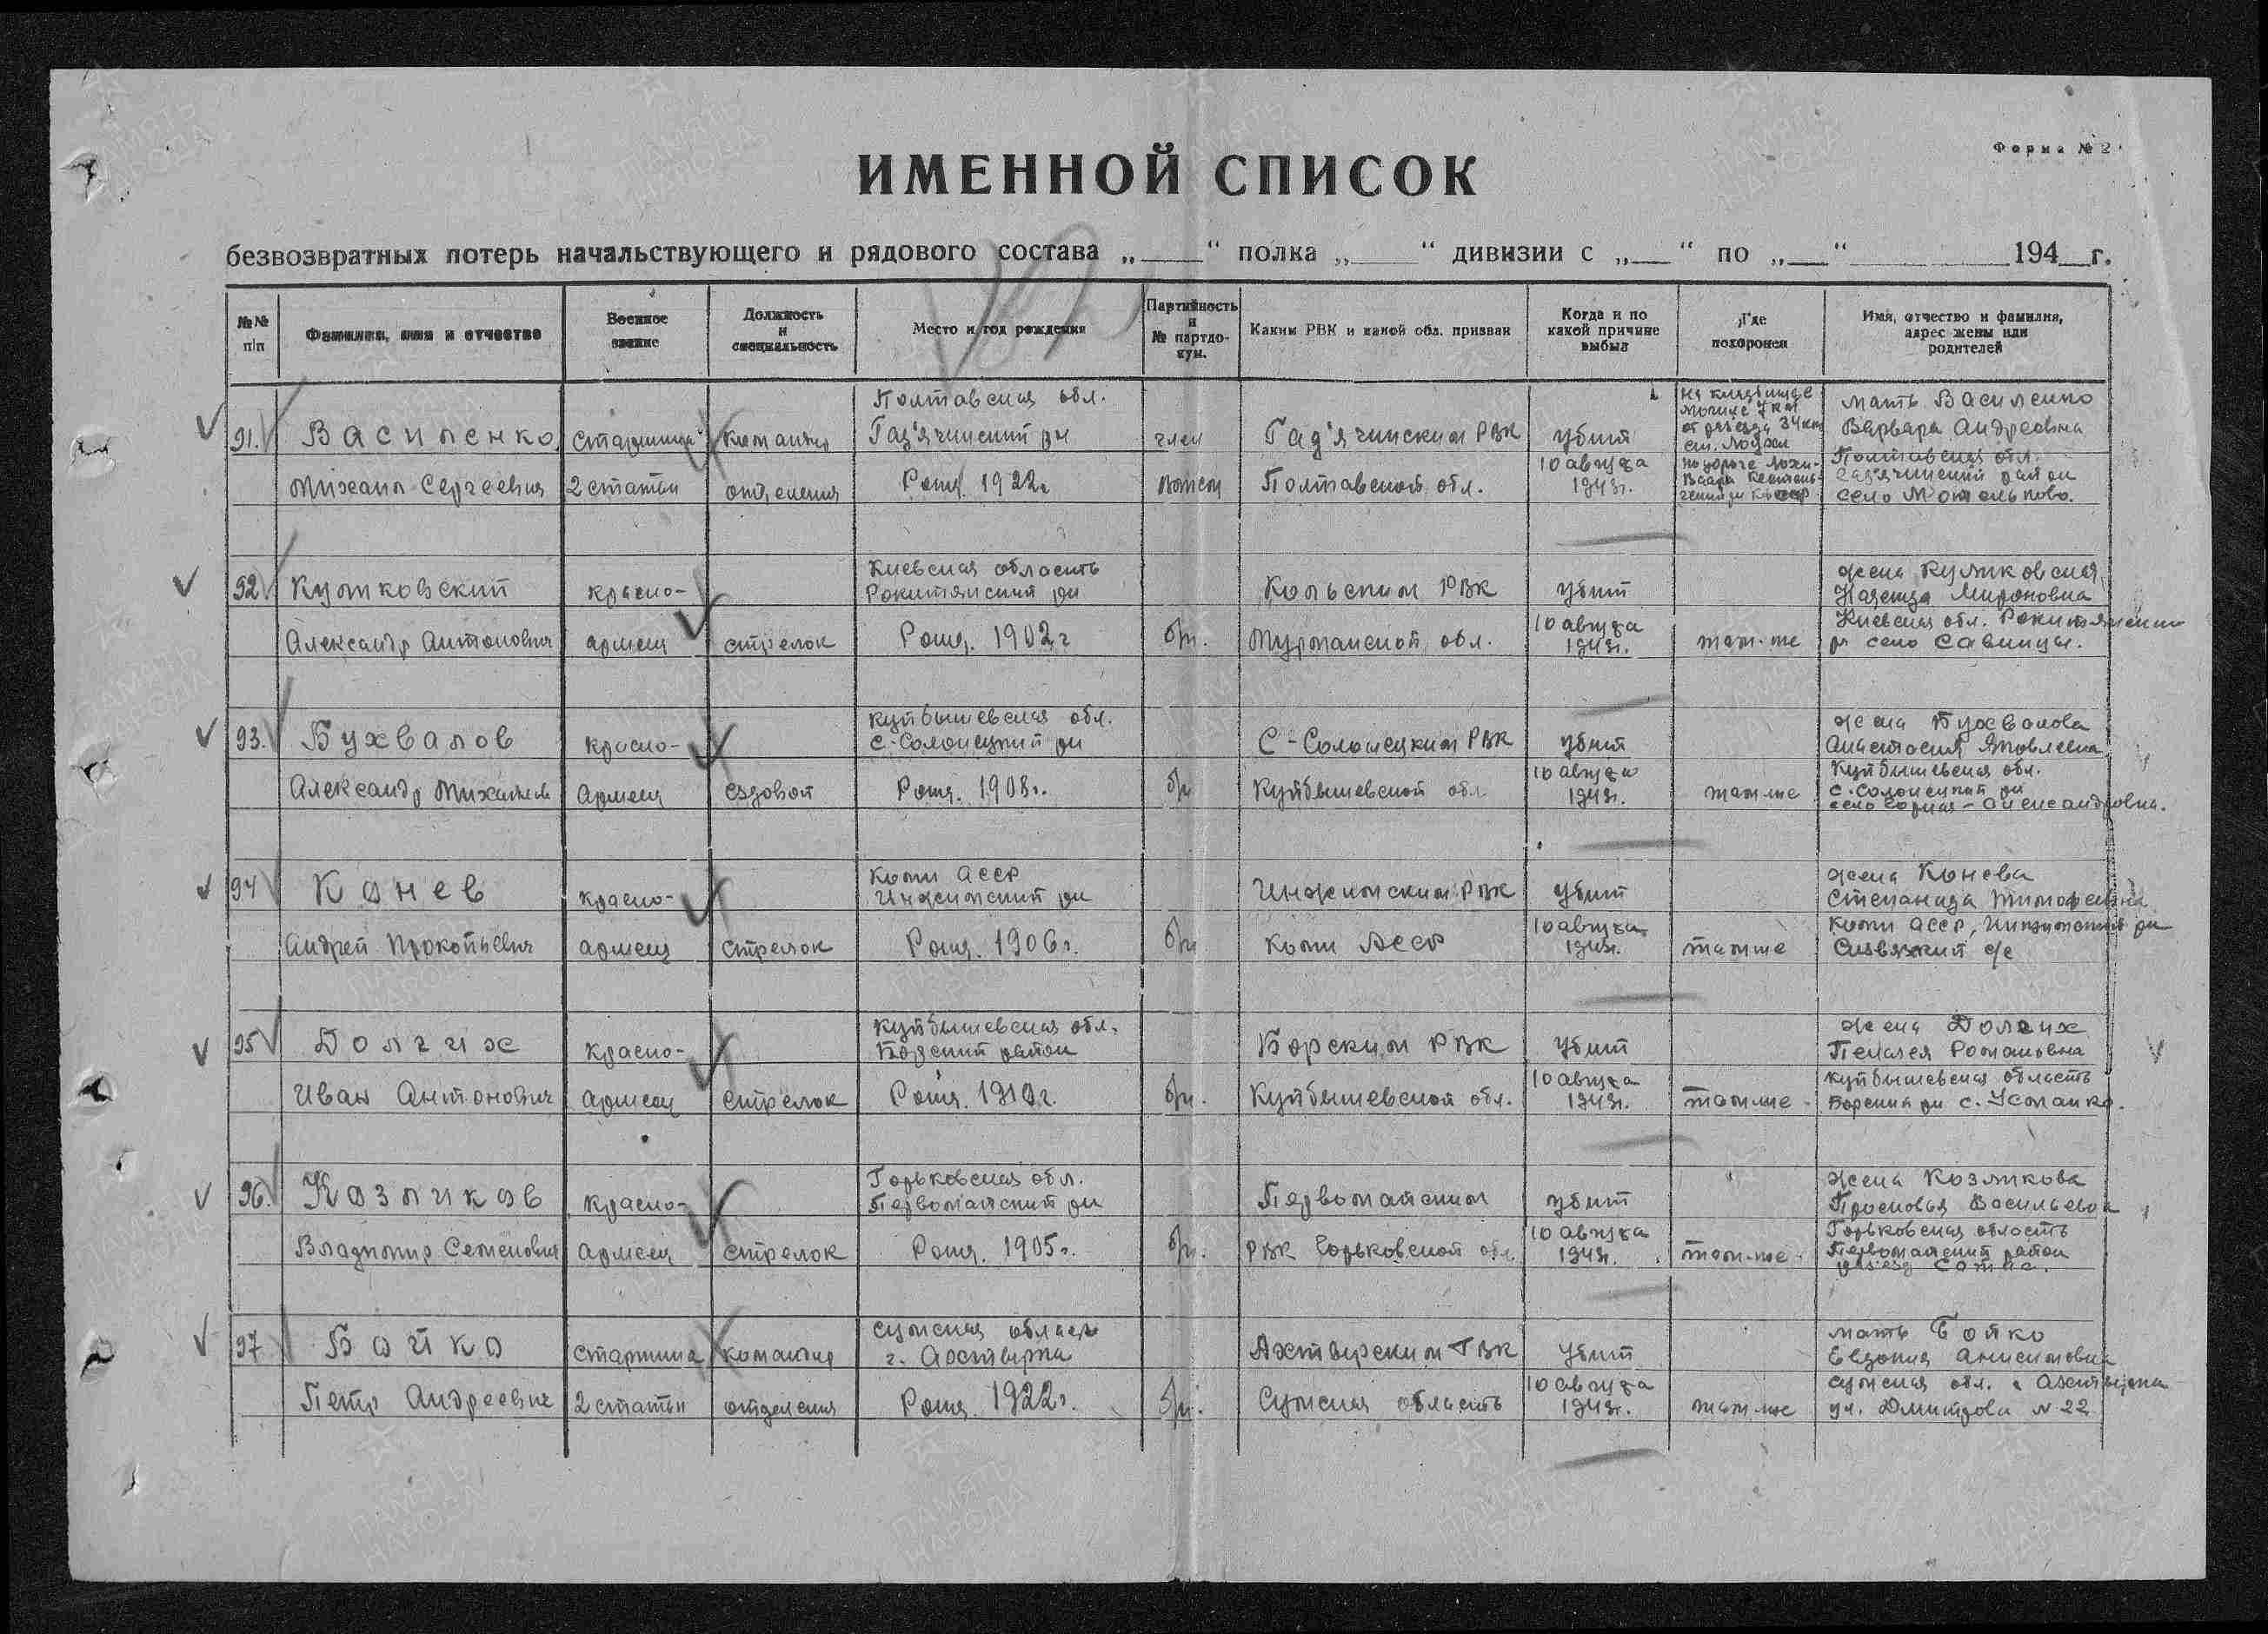 Форма № 2
ИМЕННОЙ СПИСОК
безвозвратных потерь начальствующего и рядового состава „ “ полка „ “ дивизии с „ “ по „ “ 194 г.
№№ п/п
Фамилия, имя и отчество
Военное звание
Должность и специальность
Место и год рождения
Партийность и № партдокум.
Каким РВК и какой обл. призван
Когда и по какой причине выбыл
Где похоронен
Имя, отчество и фамилия, адрес жены или родителей
91. Василенко
Михаил Сергеевич
старшина
2 статьи
командир
отделения
Полтавская обл.
Гад'ячинский рн
Рожд. 1922г
член
Гад'ячинским РВК
Полтавской обл.
убит
10 августа
1943г.
На кладбище
от раз'езда 34 км
мать Василенко
Варвара Андреевна
Полтавская обл.
село
92 Куликовский
Александр Антонович
красно-
армеец
стрелок
Киевская область
Рокитянский рн
Рожд. 1902г
б/п.
Кольским РВК
Мурманской обл.
убит
10 августа
1943г.
там-же
жена Куликовская
Надежда Мироновна
Киевская обл. Рокитянский
рн село Савинцы.
93. Бухвалов
Александр
красно-
армеец
ездовой
Куйбышевская обл.
С-Солонецкий рн
Рожд. 1908г.
б/п
С-Солонецким РВК
Куйбышевской обл
убит
10 августа
1943г.
там-же
жена Бухвалова
Анастасия Яковлевна
Куйбышевская обл.
с.Солонецкий рн
94 Конев
Андрей Прокопьевич
красно-
армеец
стрелок
Коми АССР
Ижемский рн
Рожд. 1906г.
б/п
Коми АССР
убит
10 августа
1943г.
там-же
жена Конева
Степанида Тимофеевна
Коми АССР,
с/с
95 Долгих
Иван Антонович
красно-
армеец
стрелок
Куйбышевская обл.
Борский район
Рожд. 1919г.
б/п.
Борским РВК
Куйбышевской обл.
убит
10 августа
1943г.
там-же
жена Долгих
Пелагея Романовна
Куйбышевская область
Борский рн с. Усманка.
96. Козликов
Владимир Семенович
красно-
армеец
стрелок
Горьковская обл.
Первомайский рн
Рожд. 1905г.
б/п.
Первомайским
РВК Горьковской обл.
убит
10 августа
1943г.
там-же
жена Козликова
Прасковья Васильевна
Горьковская область
Первомайский район
97 Бойко
Петр Андреевич
старшина
2 статьи
командир
отделения
Сумская область
г. Ахтырка
Рожд. 1922г.
б/п.
Ахтырским ГВК
Сумская область
убит
10 августа
1943г.
там-же
мать Бойко
Евдокия Анисимовна
Сумская обл. г Ахтырка
ул. Дмитрова № 22
ПАМЯТЬ НАРОДА